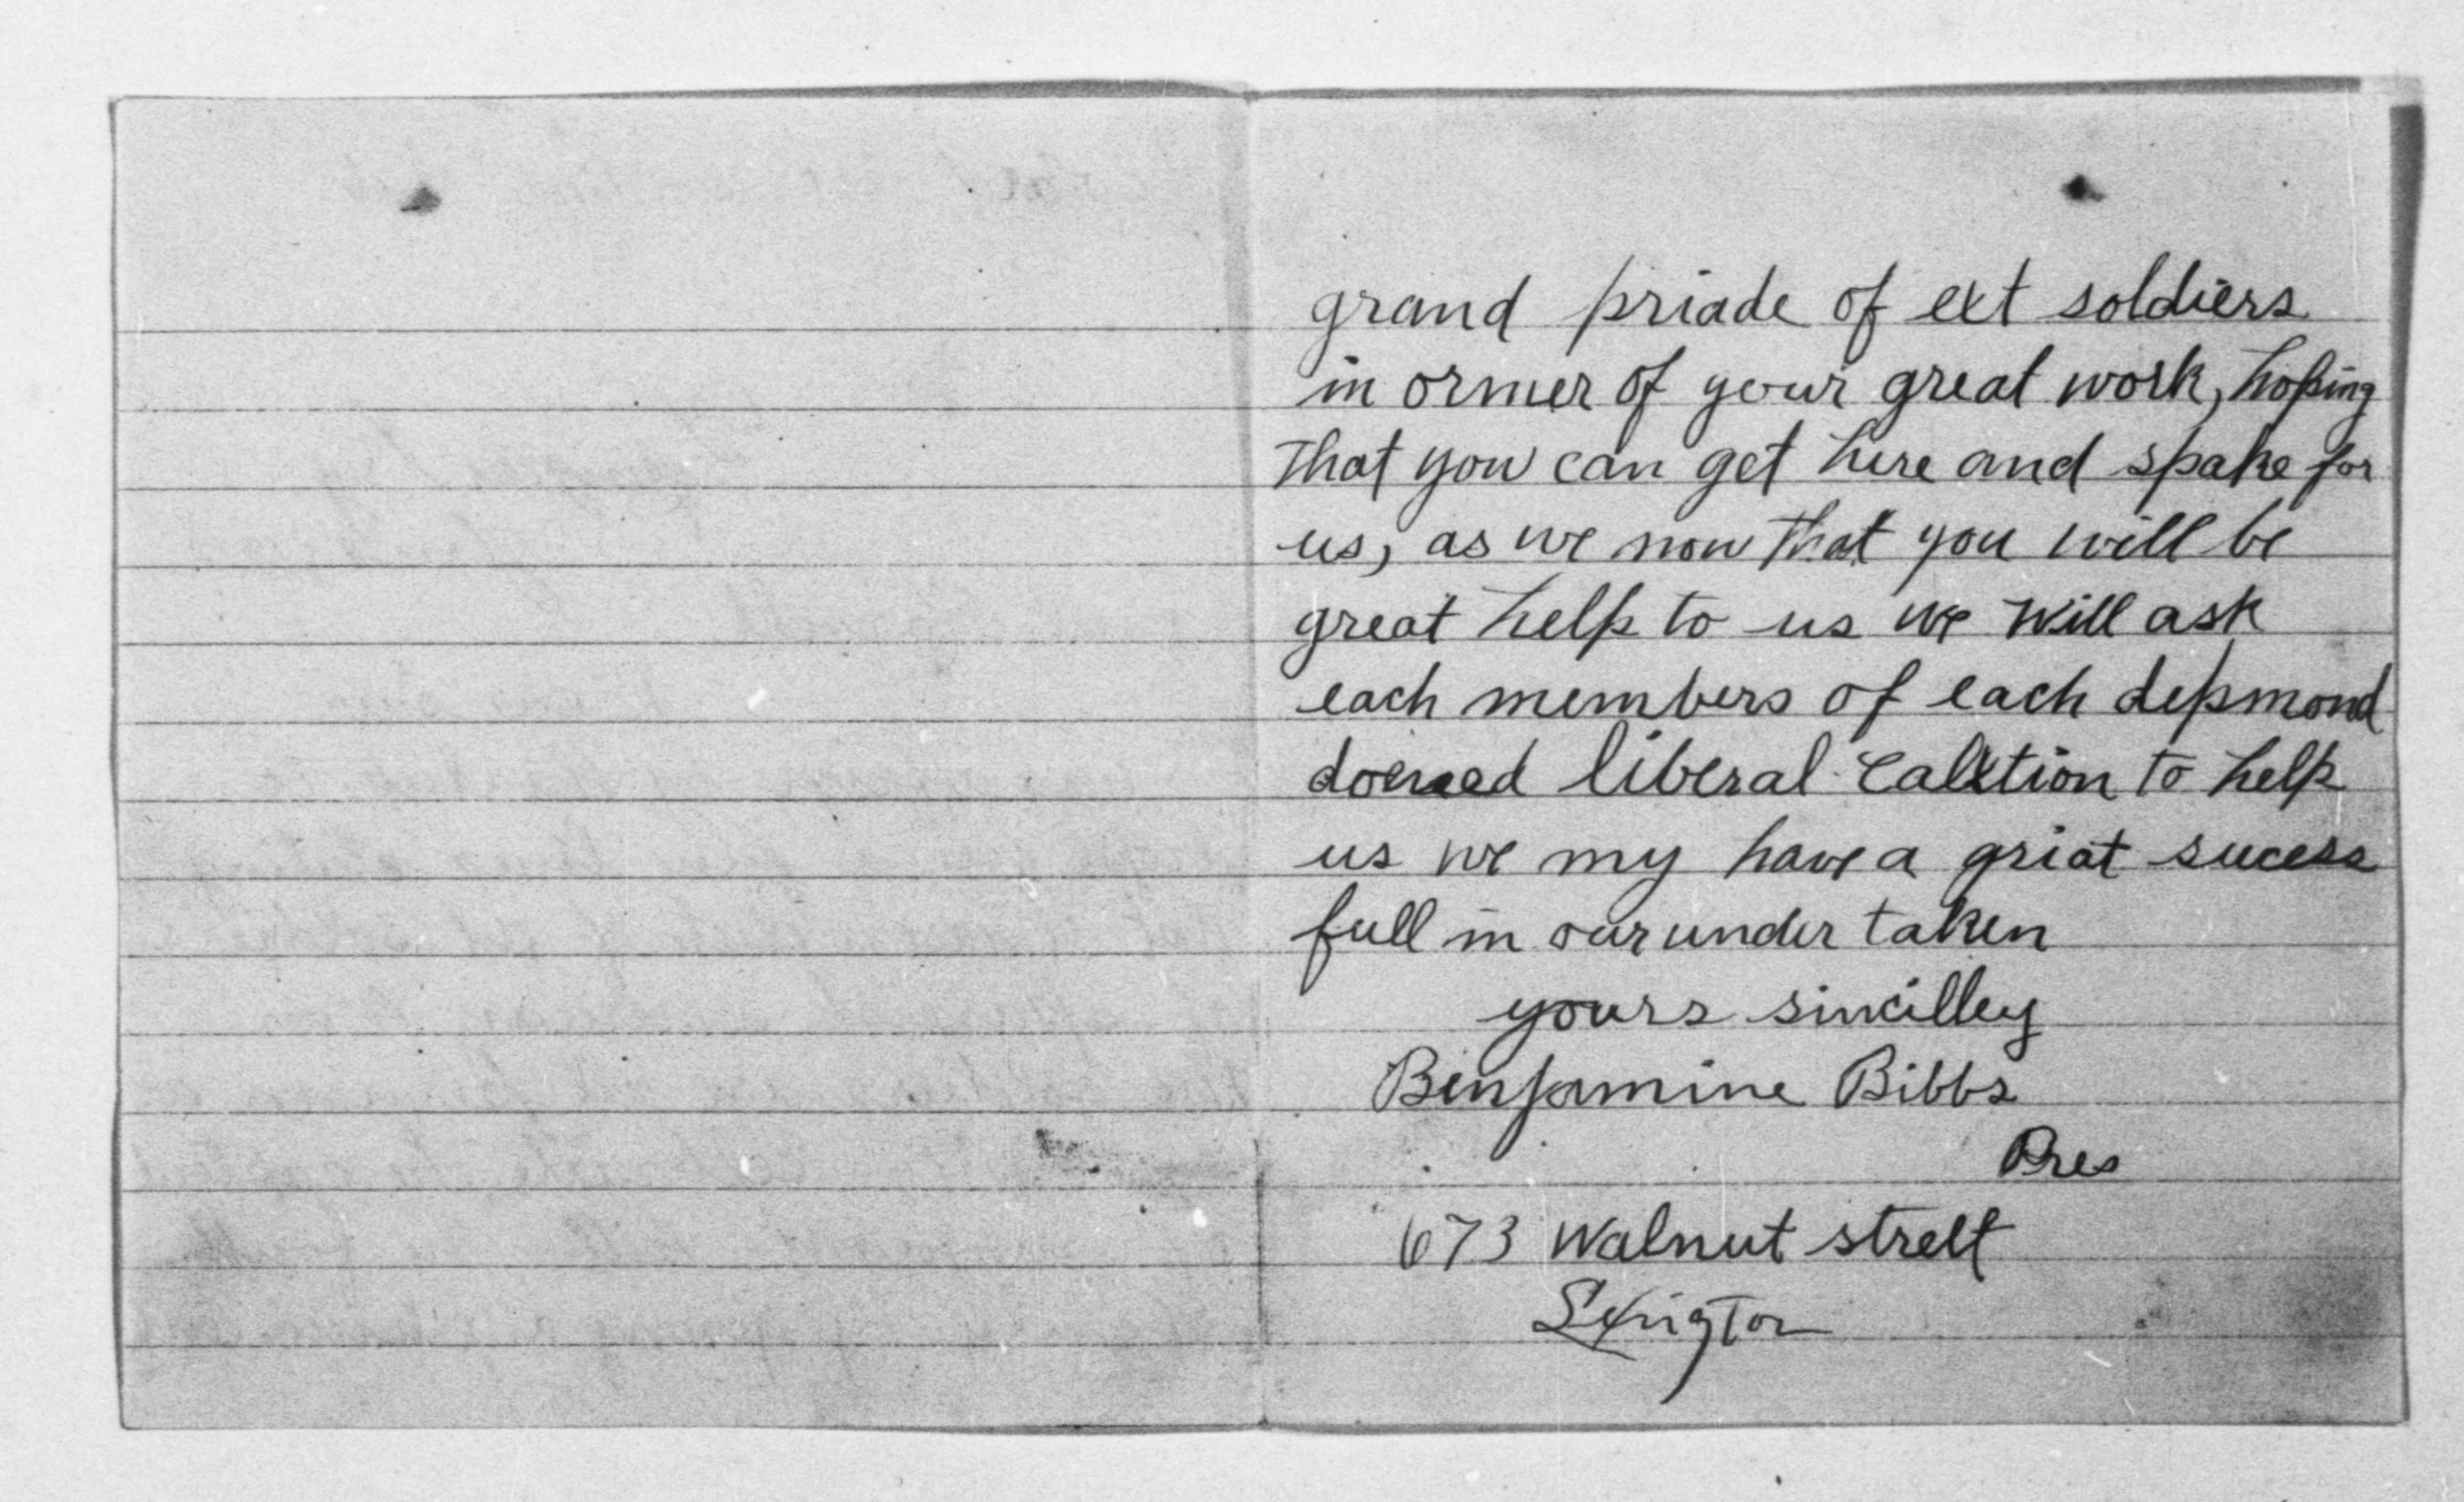 grand priade of ext soldiers
in ormer of your great work, hoping
that you can get here and spake for
us, as we now that you will be
great help to us we will ask
each members of each depmond
liberal calition to help
us we my have a griat sucess
full in our under taken
yours sincilley
Benjamine Bibbs
Pres
673 Walnut street
Lexington